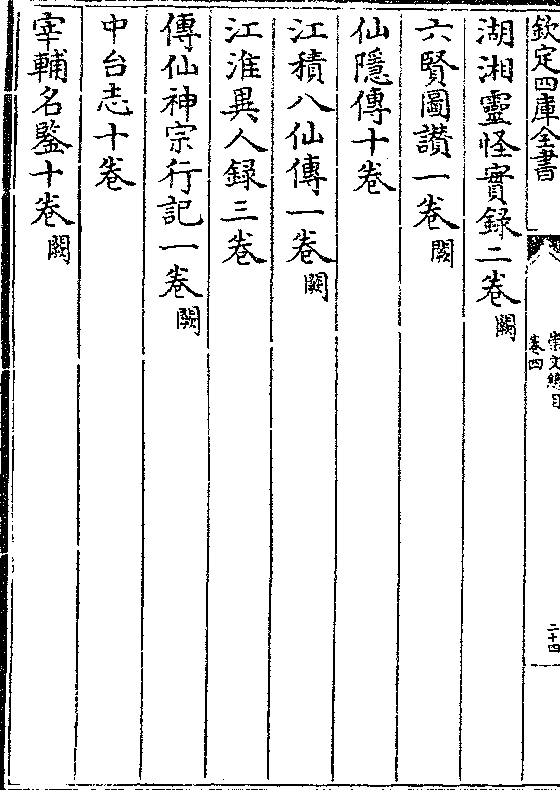 欽定四庫全書
崇文總目
卷四
二十四
湖湘靈怪實録二卷闕
六賢圖讃一卷闕
仙隱傳十卷
江積八仙傳一卷闕
江淮異人録三卷
傳仙神宗行記一卷闕
中台志十卷
宰輔名鑒十卷闕